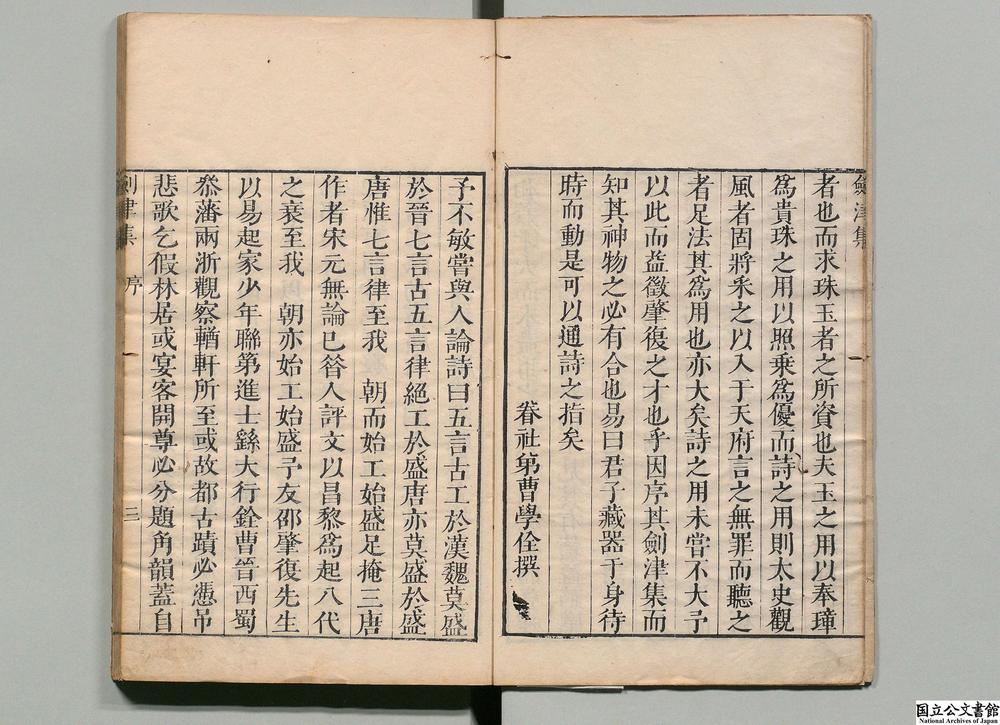 劒津集
者也而求珠玉者之所資也夫玉之用以奉璋
爲貴珠之用以照乗爲優而詩之用則太史觀
風者固將釆之以入于天府言之無罪而聽之
者足法其爲用也亦大矣詩之用未嘗不大予
以此而益徵肇復之才也乎因序其劍津集而
知其神物之必有合也易曰君子藏器于身待
時而動是可以通詩之指矣
眷社弟曹學佺撰
予不敏嘗與人論詩曰五言古工於漢魏莫盛
於晉七言古五言律絕工於盛唐亦莫盛於盛
唐惟七言律至我 朝而始工始盛足掩三唐
作者宋元無論已昝人評文以昌黎爲起八代
之衰至我 朝亦始工始盛予友邵肇復先生
以易起家少年聯第進士繇大行銓曹晉西蜀
叅藩兩浙觀察輶軒所至或故都古蹟必憑吊
悲歌乞假林居或宴客開尊必分題角韻蓋自
劍津集 序 三
国立公文書館
National Archives of Japan